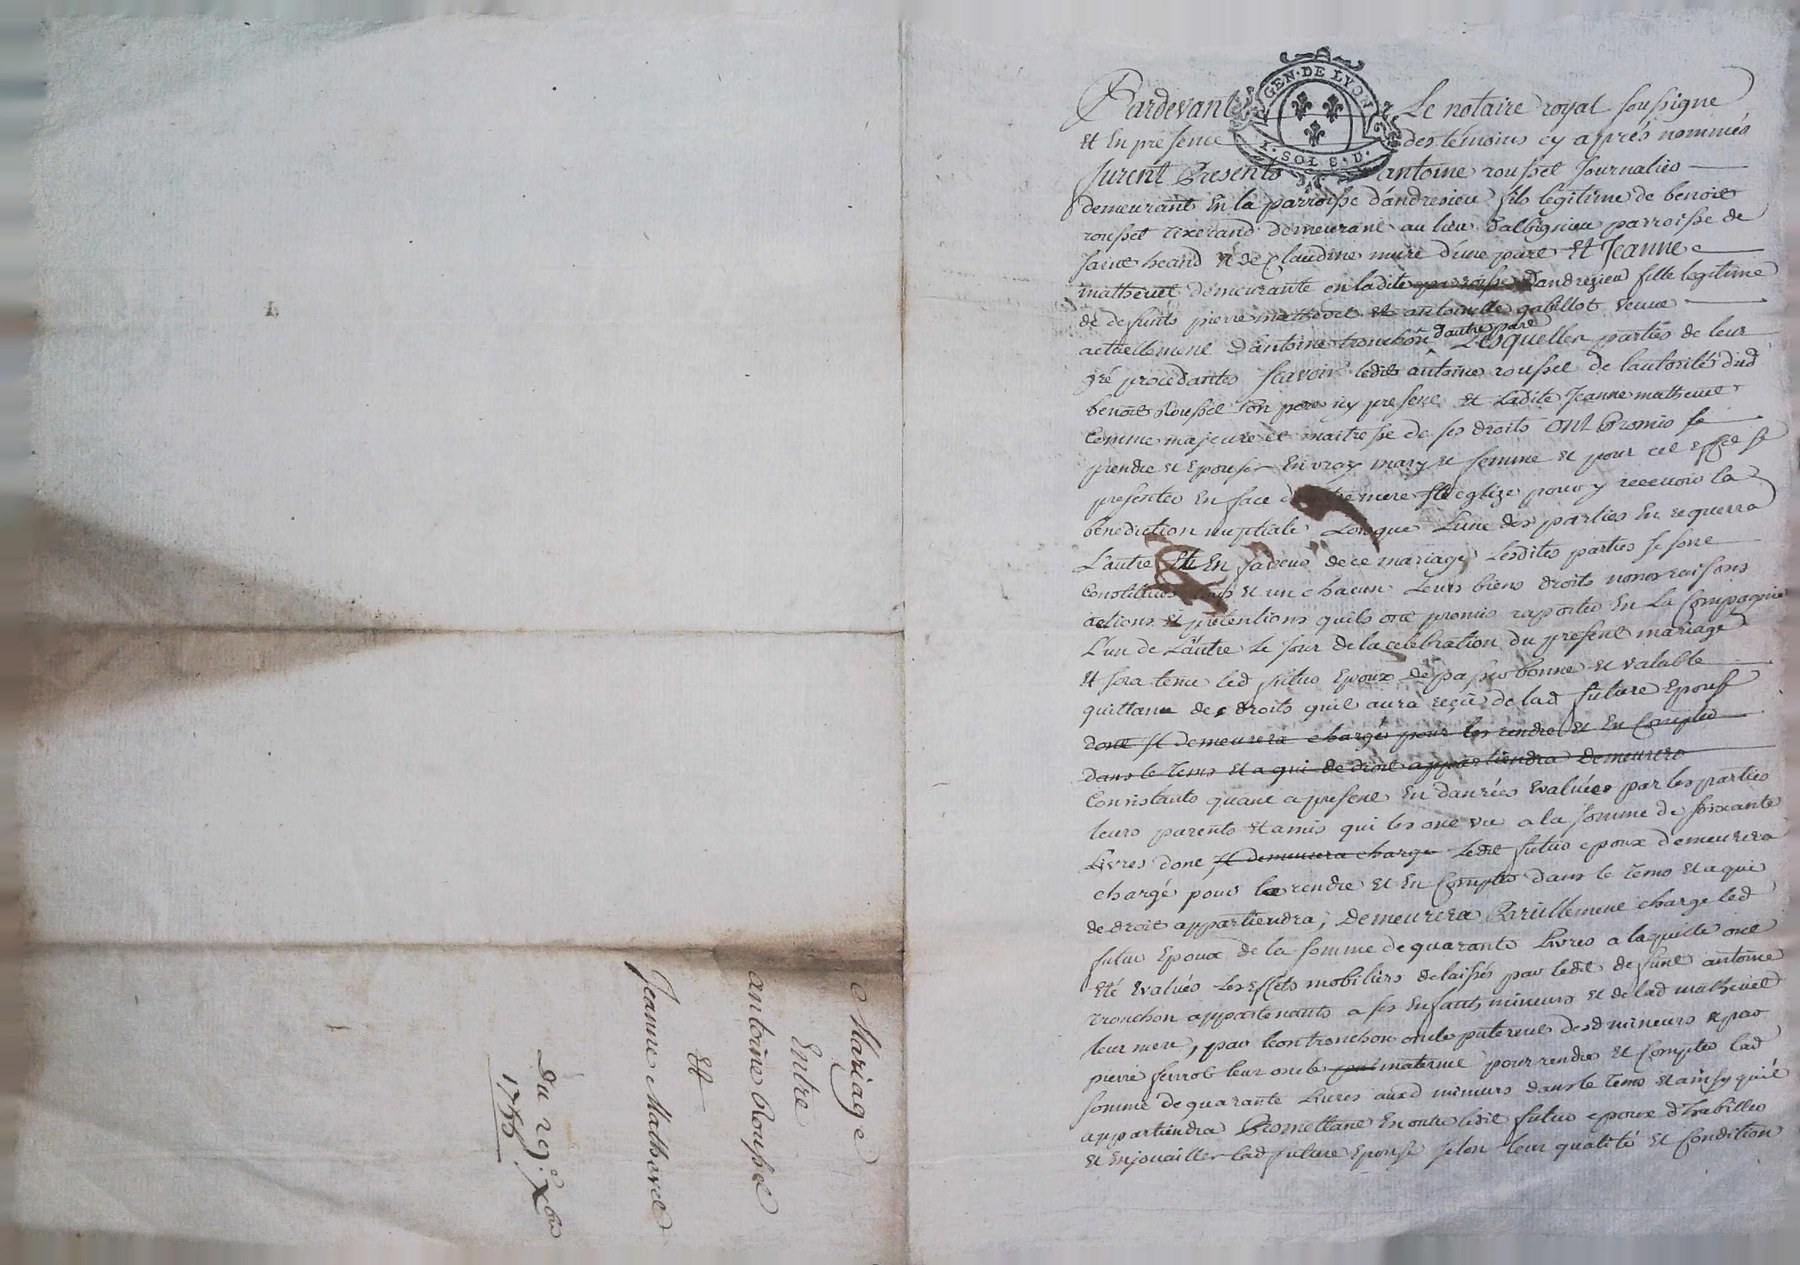 Mariage
Entre
antoine Roussel
Et
Jeanne Mathevet
Du 29e Xbre
1755
GEN. DE LYON
1. SOL 8. D.
Pardevant Le notaire royal soussigne
Et En presence des témoins cy aprés nommés
furent Presents antoine roussel Journalier
demeurant En la parroisse d'andresieu fils légitime de benoit
roussel tixerand demeurant au lieu d'albignieu parroisse de
saint heand Et de Claudine mure d'une part Et Jeanne
mathevet demeurante en ladite parroisse d'andrezieu fille legitime
de defunts pierre mathevet et antoinette gabillot veuve
actuellement d'antoine tronchon d'autre part Lesquelles parties de leur
gré procedantes scavoir ledit antoine roussel de l'autorité dud
benoit Roussel son pere icy present et Ladite Jeanne mathevet
Comme majeure et maitresse de ses droits Ont Promis se
prendre et Epouser En vray mary et femme et pour cet effet se
presenter En face de notre mere ste eglize pour y recevoir la
bénédiction nuptiale Lorsque L'une des parties En requerra
L'autre Et En faveur de ce mariage Lesdites parties se sont
Constitués tous et un chacun Leurs biens droits noms raisons
actions et prétentions quils ont promis raporter En La Compagnie
L'un de L'autre Le jour de la celebration du present mariage
Et sera tenu led futur Epoux de passer bonne et valable
quittance des droits quil aura reçu de lad future Epouse
dont il demeurera chargé pour les rendre et En Compter
dans le tems et a qui de droit appartiendra demeurere
Consistants quant a present En danrées Evaluées par les parties
leurs parents et amis qui les ont vu a la somme de soixante
Livres dont il demeurera charge Ledit futur epoux demeurera
chargé pour le rendre et En Compter dans le tems et a qui
de droit appartiendra, demeurera Pareillement charge led
futur Epoux de la somme de quarante Livres a laquelle ont
Eté Evalués Les Effets mobiliers delaissés par ledit defunt antoine
tronchon appartenants a ses Enfants mineurs et de lad mathevet
leur mere, par leon tronchon oncle paternel desd mineurs et par
pierre ferrot leur oncle maternel pour rendre et Compter lad
somme de quarante Livres auxd mineurs dans le tems et ainsy quil
appartiendra Promettant En outre ledit futur epoux d'habiller
et Enjouailler lad future Epouse selon leur qualité et Condition